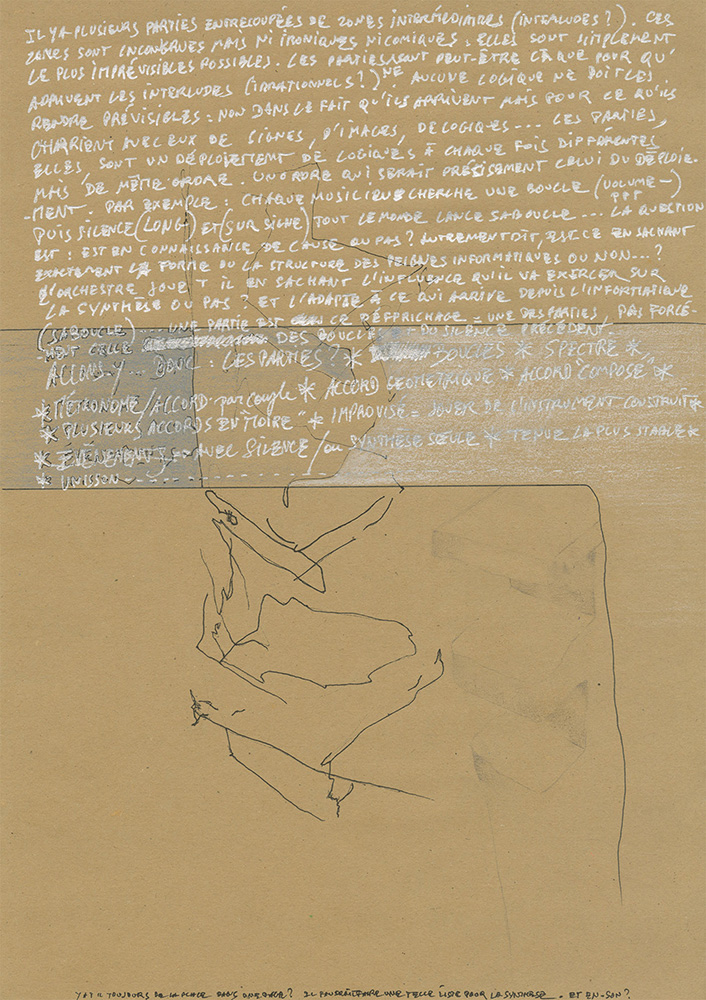 IL Y A PLUSIEURS PARTIES ENTRECOUPÉES DE ZONES INTERMÉDIAIRES (INTERLUDES ?). CES
ZONES SONT INCONGRUES MAIS NI IRONIQUES NI COMIQUES : ELLES SONT SIMPLEMENT
LE PLUS IMPRÉVISIBLES POSSIBLES). LES PARTIES SONT PEUT-ÊTRE LÀ QUE POUR QU'
ARRIVENT LES INTERLUDES (IRRATIONNELS ?) NE AUCUNE LOGIQUE NE DOIT LES
RENDRE PRÉVISIBLES : NON DANS LE FAIT QU'ILS ARRIVENT MAIS POUR CE QU'ILS
CHARRIENT AVEC EUX DE SIGNES, D'IMAGES, DE LOGIQUES ... LES PARTIES,
ELLES, SONT UN DÉPLOIEMENT DE LOGIQUES À CHAQUE FOIS DIFFÉRENTES
MAIS DE MÊME ORDRE. UN ORDRE QUI SERAIT PRÉCISEMENT CELUI DU DÉPLOIE-
-MENT. PAR EXEMPLE : CHAQUE MUSICIEN CHERCHE UNE BOUCLE (VOLUME -) PPP
PUIS SILENCE (LONG) ET (SUR SIGNE) TOUT LE MONDE LANCE SA BOUCLE ... LA QUESTION
EST : EST EN CONNAISSANCE DE CAUSE OU PAS ? AUTREMENT DIT, EST CE EN SACHANT
EXACTEMENT LA FORME OU LA STRUCTURE DES PEIGNES INFORMATIQUES OU NON ... ?
L'ORCHESTRE JOUE T IL EN SACHANT L'INFLUENCE QU'IL VA EXERCER SUR
LA SYNTHÈSE OU PAS ? ET L'ADAPTE À CE QUI ARRIVE DEPUIS L'INFORMATIQUE
(SA BOUCLE) ... UNE PARTIE EST CE DÉFRICHAGE = UNE DES PARTIES, PAS FORCÉ-
-MENT CELLE DES BOUCLES - DU SILENCE PRÉCÉDENT -
ALLONS-Y ... DONC : LES PARTIES ! * BOUCLES * SPECTRE *
* MÉTRONOME / ACCORD par couple * ACCORD GEOMETRIQUE * ACCORD COMPOSÉ *
* PLUSIEURS ACCORDS EN "MOIRE" * IMPROVISÉ = JOUER DE L'INSTRUMENT CONSTRUIT *
* ÉVÉNEMENTS - AVEC SILENCE / ou SYNTHÈSE SEULE * TENUE LA PLUS STABLE *
* UNISSON - - - - - - - - - - - - -
Y A T IL TOUJOURS DE LA PLACE DANS UNE ? IL FAUDRAIT FAIRE UNE TELLE LISTE POUR LA SYNTHÈSE. ET EN-SON ?